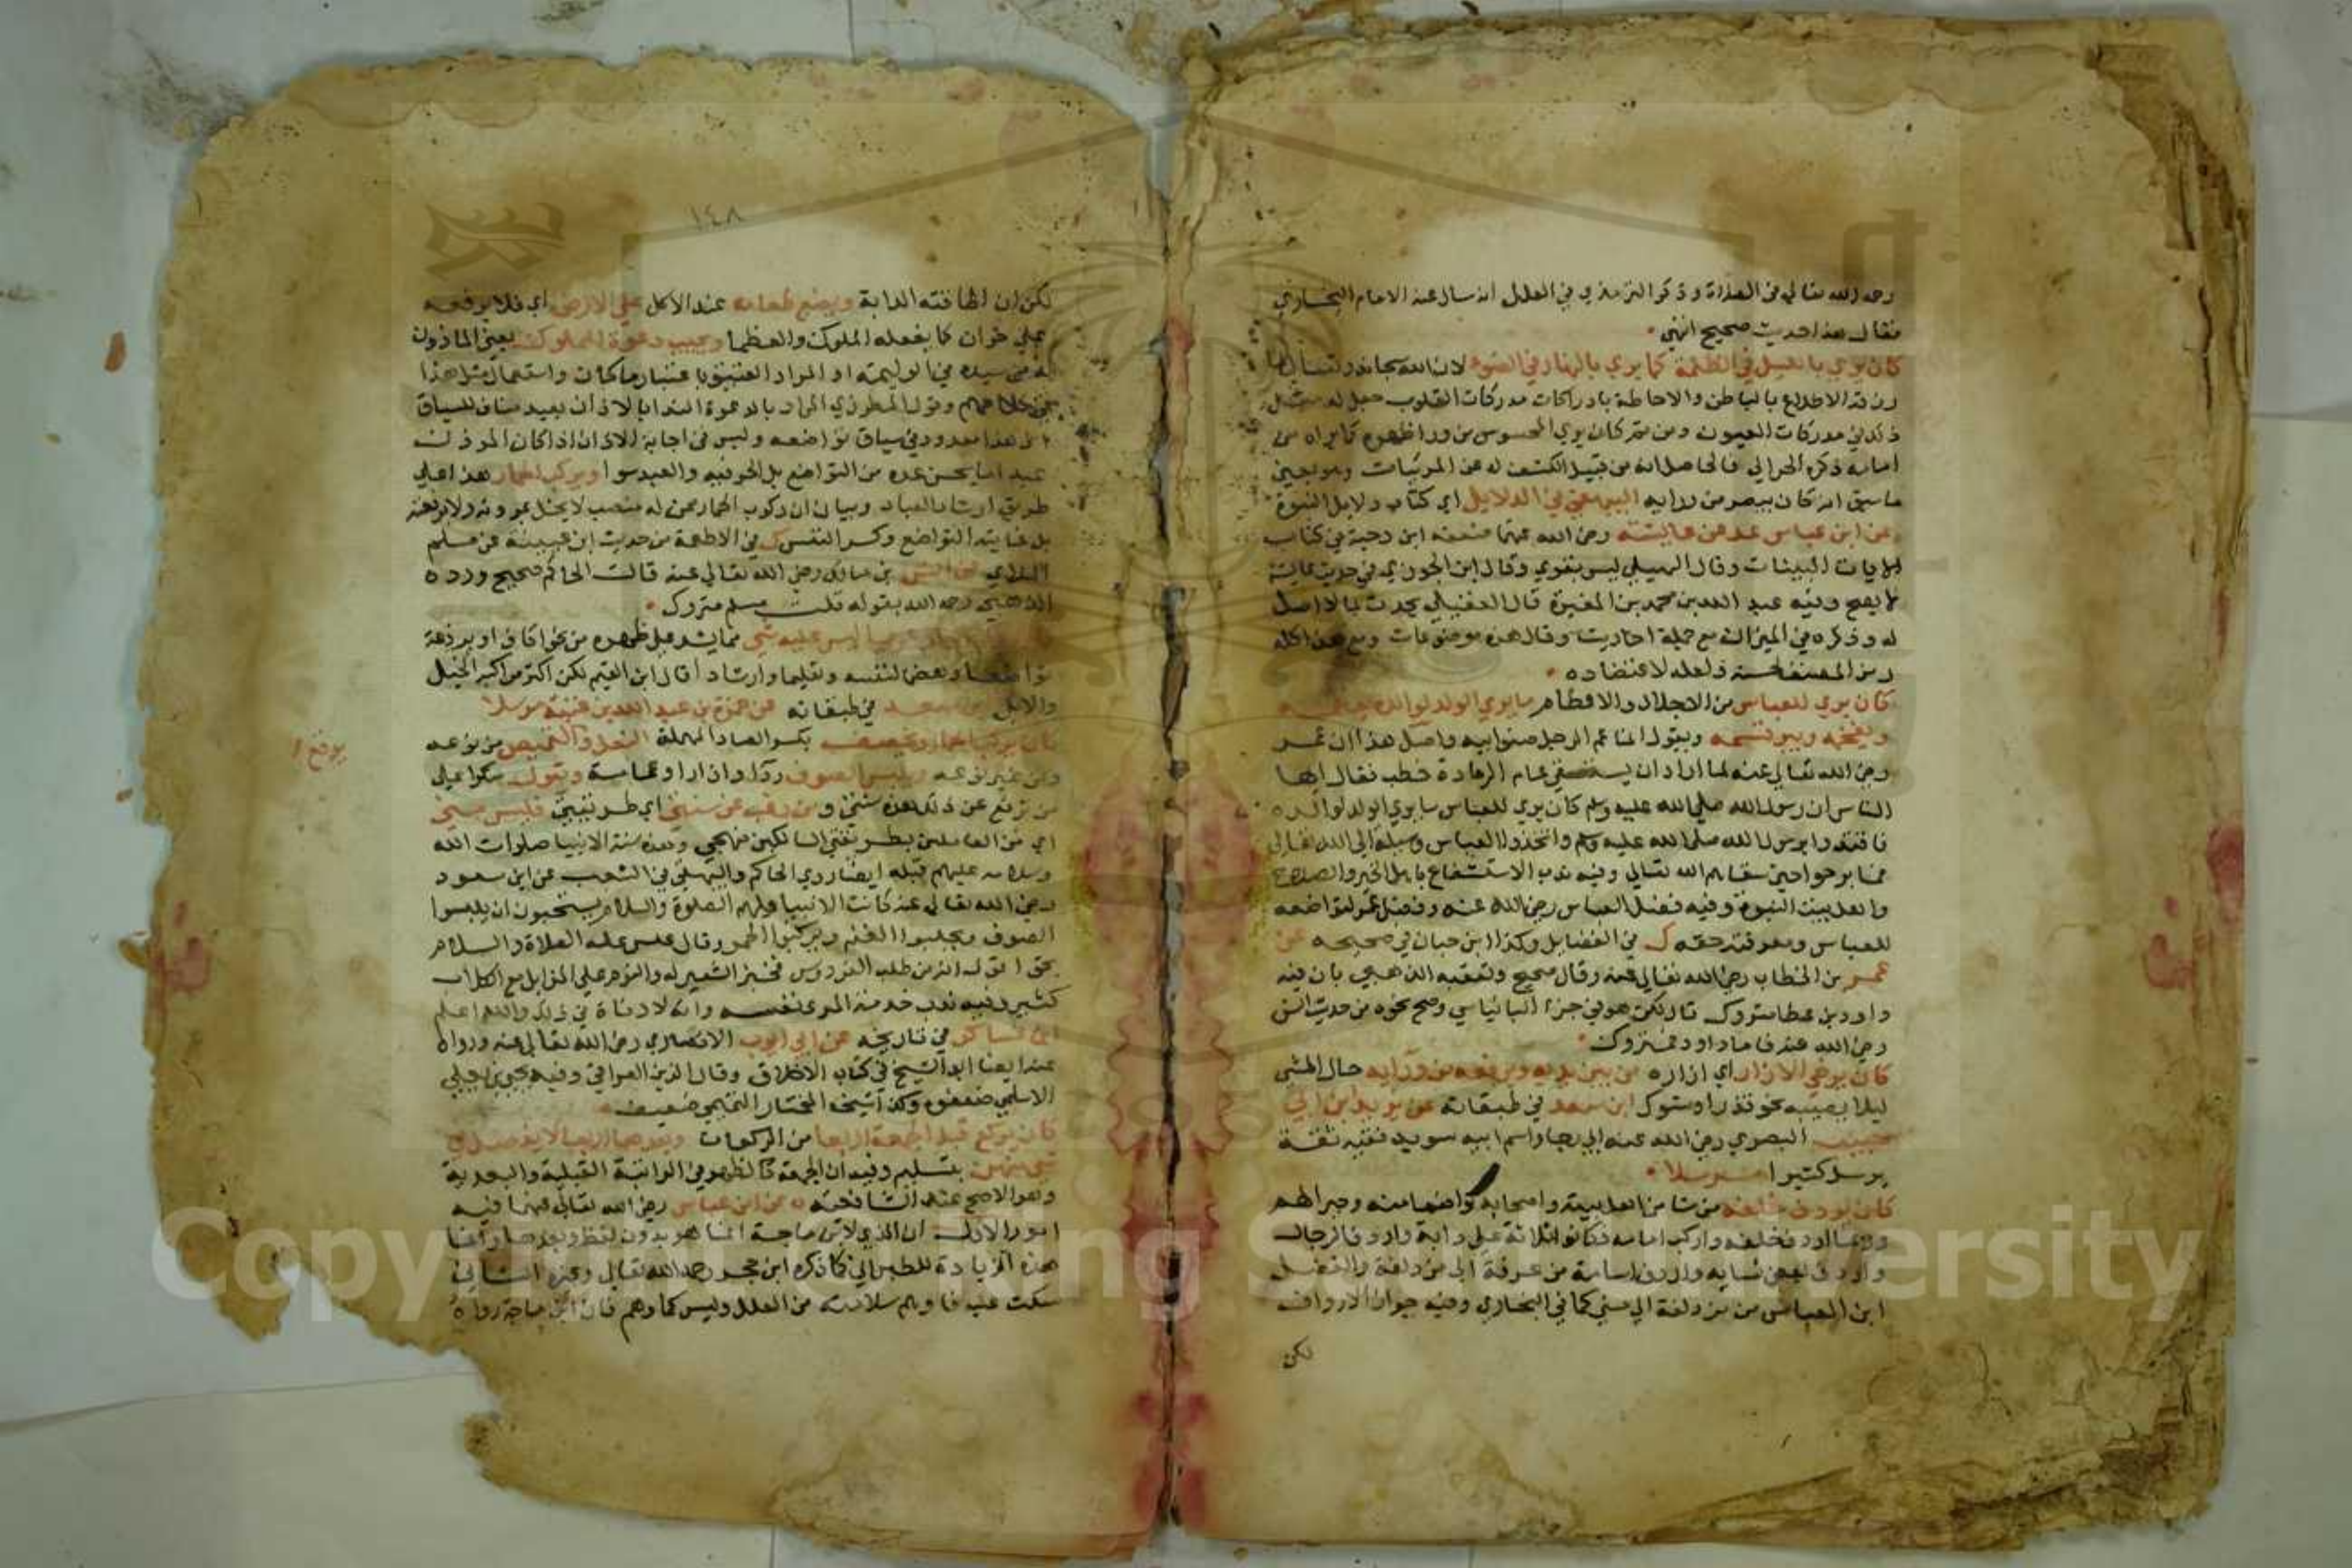 رحمه الله تعالى في الصلاة وذكر الترمذي في العلل انه سال عنه الامام البخاري
فقال هذا حديث صحيح انتهى
كان يرى بالليل في الظلمة كما يرى بالنهار في الضوء لان الله سبحانه وتعالى لما
رزقه الاطلاع بالباطن والاحاطة بادراكات مدركات القلوب جعل له مثل
ذلك في مدركات العيون ومن ثم كان يرى المحسوس من وراء ظهره كما يراه من
امامه ذكره الحرالي فالحاصل انه من قبيل الكشف له عن المرئيات وهو في معنى
ما سبق انه كان يبصر من ورايه البيهقي في الدلايل اي كتاب دلايل النبوة
عن ابن عباس عد عن عايشة رضي الله عنها ضعفه ابن دحية في كتاب
الايات البينات وقال السهيلي ليس بقوي وقال ابن الجوزي في حديث عايشة
لا يصح وفيه عبد الله بن محمد بن المغيرة قال العقيلي يحدث بما لا اصل
له وذكره في الميزان مع جملة احاديث وقال هذه موضوعات ومع هذا كله
رمز المصنف لحسنه ولعله لاعتضاده
كان يرى للعباس من الاجلال والاعظام ما يرى الولد لوالده يعظمه
ويفخمه ويبر قسمه ويقول انما عم الرجل صنو ابيه واصل هذا ان عمر
رضي الله تعالى عنه لما اراد ان يستسقي عام الرمادة خطب فقال ايها
الناس ان رسول الله صلى الله عليه وسلم كان يرى للعباس ما يرى الولد لوالده
فاقتدوا برسول الله صلى الله عليه وسلم واتخذوا العباس وسيلة الى الله تعالى
فما برحوا حتى سقاهم الله تعالى وفيه ندب الاستشفاع باهل الخير والصلاح
واهل بيت النبوة وفيه فضل العباس رضي الله عنه وفضل عمر لتواضعه
للعباس ومعرفته حقه ك في الفضايل وكذا ابن حبان في صحيحه عن
عمر بن الخطاب رضي الله تعالى عنه وقال صحيح وتعقبه الذهبي بان فيه
داود بن عطا متروك قال لكن هو في جزء البانياسي وصح نحوه من حديث انس
رضي الله عنه فاما داود فمتروك
كان يرخي الازار اي ازاره من بين يديه ويرفعه من ورايه حال المشي
ليلا يصيبه نحو قذر او شوك ابن سعد في طبقاته عن يزيد بن ابي
حبيب البصري رضي الله عنه ابي رجا واسم ابيه سويد فقيه ثقة
يرسل كثيرا مرسلا
كان يردف خلفه من شا من اهل بيته واصحابه تواضعا منه وجبرا لهم
وربما اردف خلفه واركب امامه فكانوا ثلاثة على دابة واردف الرجال
واردف بعض نسايه واردف اسامة من عرفة الى مزدلفة والفضل
ابن العباس من مزدلفة الى منى كما في البخاري وفيه جواز الارداف
لكن
١٤٨
لكن ان اطاقته الدابة ويضع طعامه عند الاكل على الارض اي فلا يرفعه
على خوان كما يفعله الملوك والعظما ويجيب دعوة المملوك يعني الماذون
له من سيده في الوليمة او المراد العتيق باعتبار ما كان واستعمال مثل هذا
في كلامهم وقول المطرزي المراد بالدعوة الندا بالاذان بعيد مناف للسياق
اذ هذا معدود في سياق تواضعه وليس في اجابة الاذان اذا كان الموذن
عبد ما يحسن عده من التواضع بل الحر فيه والعبد سوا ويركب الحمار هذا على
طريق ارشاد العباد وبيان ان ركوب الحمار ممن له منصب لا يخل بمروته ولا برفعته
بل غايته التواضع وكسر النفس ك في الاطعمة من حديث ابن عيينة عن مسلم
الملائي عن انس بن مالك رضي الله تعالى عنه قالت الحاكم صحيح ورده
الذهبي رحمه الله بقوله قلت مسلم متروك
ليس عليه شي مما يشد على ظهره من نحو اكاف او برذعة
تواضعا وهضما لنفسه وتعليما وارشادا قال ابن القيم لكن اكثر مراكبه الخيل
والابل ابن سعد في طبقاته عن حمزة بن عبد الله بن عتبة مرسلا
كان يركب الحمار ويخصف بكسر الصاد المهملة النعل والقميص من نوعه
يرقع
ومن غير نوعه ويلبس الصوف ردا وازارا وعمامة ويقول منكرا على
من ترفع عن ذلك هذه سنتي ومن رغب عن سنتي اي طريقتي فليس مني
اي من العاملين بطريقتي السالكين منهجي وهذه سنة الانبيا صلوات الله
وسلامه عليهم قبله ايضا روى الحاكم والبيهقي في الشعب عن ابن مسعود
رضي الله تعالى عنه كانت الانبيا عليهم الصلوة والسلام يستحبون ان يلبسوا
الصوف ويحلبوا الغنم ويركبوا الحمر وقال عيسى عليه الصلاة والسلام
بحق اقول انه من طلب الفردوس فخبز الشعير له والنوم على المزابل مع الكلاب
كثير وفيه ندب خدمة المرء نفسه وانه لا دناة في ذلك والله اعلم
ابن عساكر في تاريخه عن ابي ايوب الانصاري رضي الله تعالى عنه ورواه
عنه ايضا ابو الشيخ في كتاب الاخلاق وقال الزين العراقي وفيه يحيى بن يعلى
الاسلمي ضعفوه وكذا شيخه المختار التيمي ضعيف
كان يركع قبل الجمعة اربعا من الركعات وبعدها اربعا لا يفصل في
شي منهن بتسليم وفيه ان الجمعة كالظهر في الراتبة القبلية والبعدية
وهو الاصح عند الشافعية ه عن ابن عباس رضي الله تعالى عنهما فيه
امور الاول ان الذي لابن ماجة انما هو بدون لفظ وبعدها واربعا
هذه الزيادة للطبراني كما ذكره ابن حجر رحمه الله تعالى وغيره الثاني
سكت عليه فاوهم سلامته من العلل وليس كما وهم فان ابن ماجة رواه